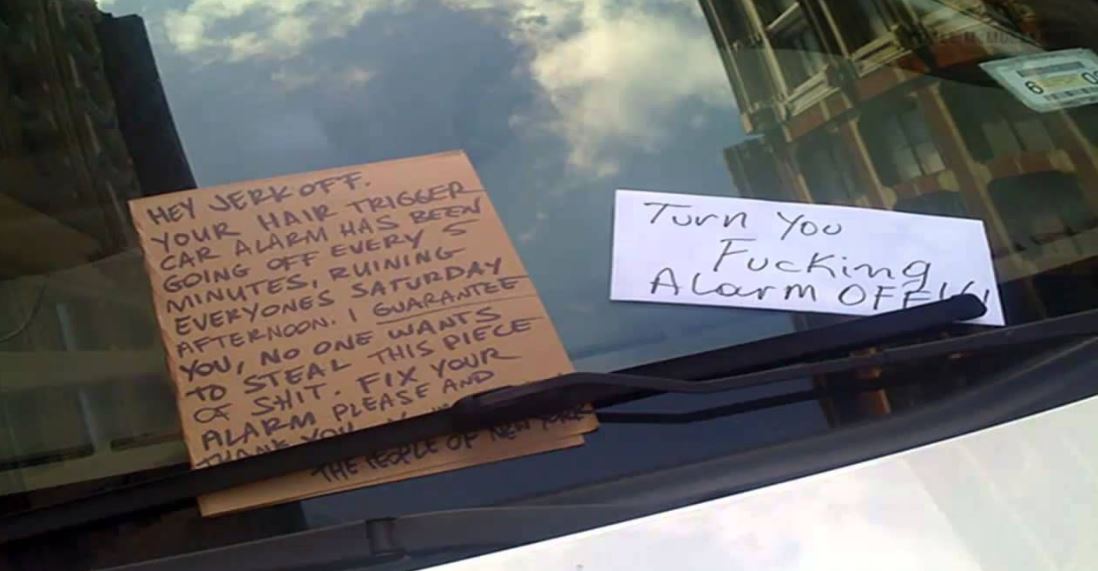 HEY JERKOFF.
YOUR HAIR TRIGGER
CAR ALARM HAS BEEN
GOING OFF EVERY 5
MINUTES, RUINING
EVERYONES SATURDAY
AFTERNOON. I GUARANTEE
YOU, NO ONE WANTS
TO STEAL THIS PIECE
OF SHIT. FIX YOUR
ALARM PLEASE AND
THANK YOU.
THE PEOPLE OF NEW YORK
Turn You
Fucking
Alarm OFF!!!
6